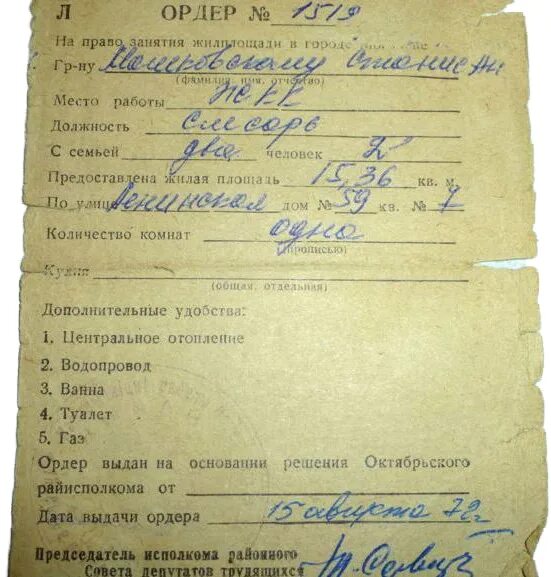 Л ОРДЕР № 1519
На право занятия жилплощади в городе
Гр-ну Машковскому Станисл
(фамилия, имя, отчество)
Место работы ЖКК
Должность слесарь
С семьей два человек 2
Предоставлена жилая площадь 15,36 кв. м.
По улице Ленинской дом № 59 кв. № 7
Количество комнат одна
(прописью)
Кухня
(общая, отдельная)
Дополнительные удобства:
1. Центральное отопление
2. Водопровод
3. Ванна
4. Туалет
5. Газ
Ордер выдан на основании решения Октябрьского
райисполкома от
Дата выдачи ордера 15 августа 72г
Председатель исполкома районного
Совета депутатов трудящихся